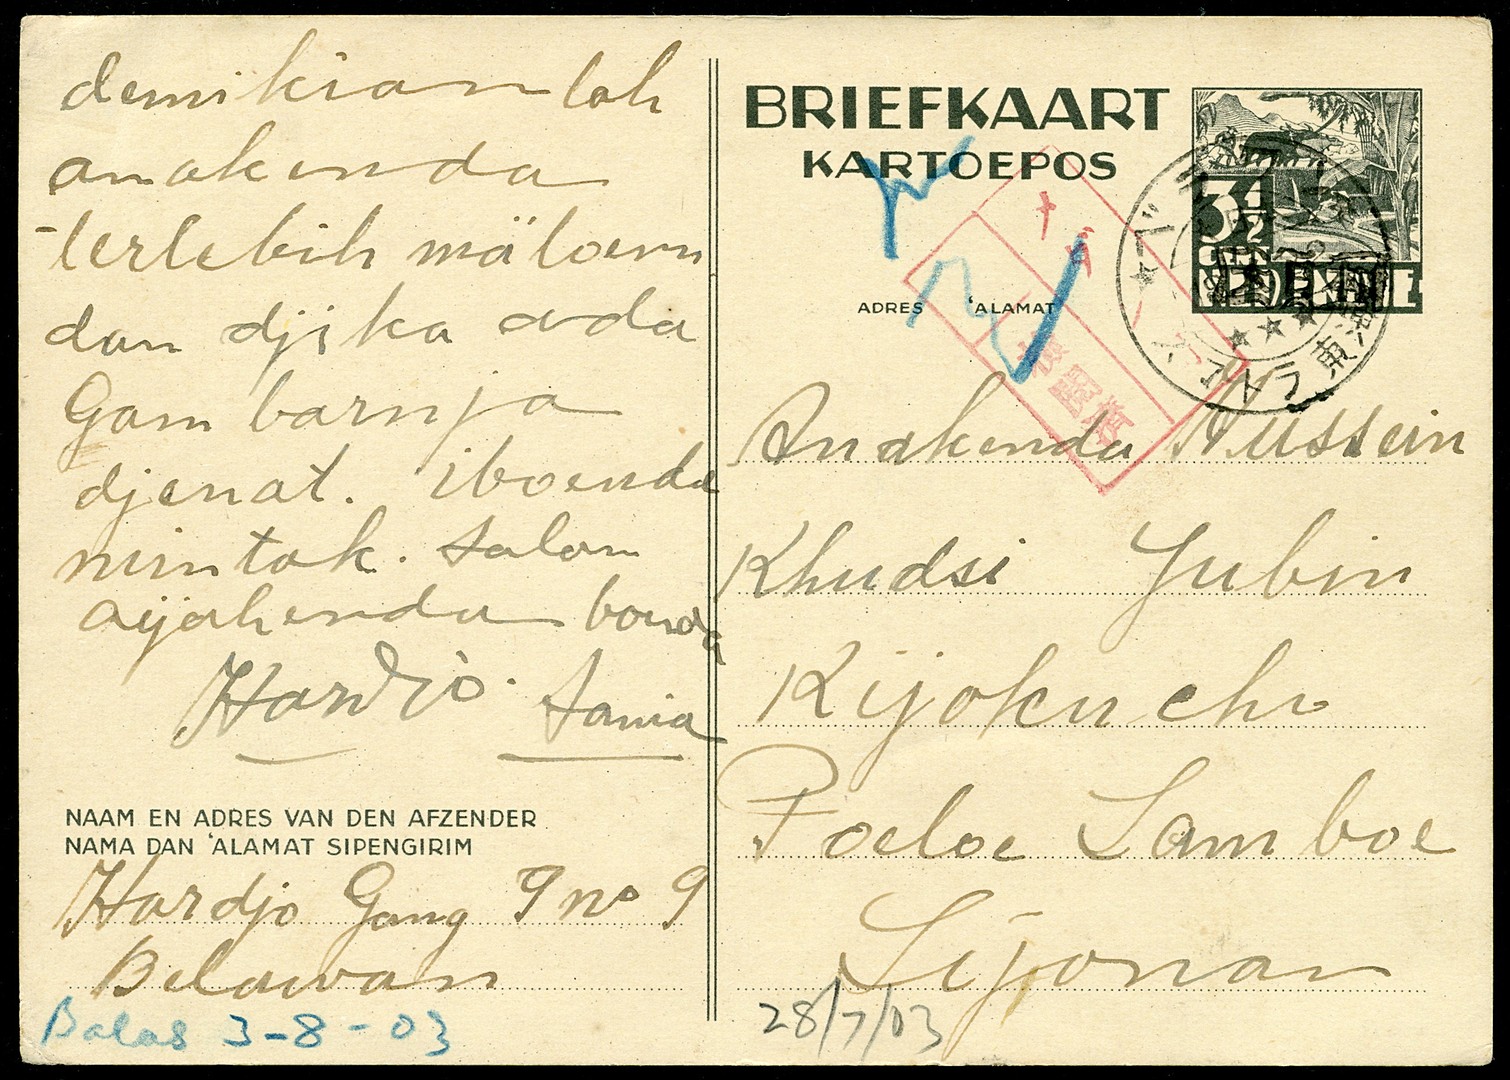 demikian lah
anakenda
terlebih mäloem
dan djika ada
Gam barnja
djenat. iboenda
mintak. salam
ayahenda bonda
Hardjo. Samia
NAAM EN ADRES VAN DEN AFZENDER
NAMA DAN 'ALAMAT SIPENGIRIM
Hardjo Gang 9 no 9
Belawan
Balas 3-8-03
BRIEFKAART
KARTOEPOS
3½
CENT
NED INDIE
ADRES 'ALAMAT
検閲済
Anakenda Hussein
Khudsi Yubin
Kijokuchi
Poeloe Samboe
Sijonan
28/7/03